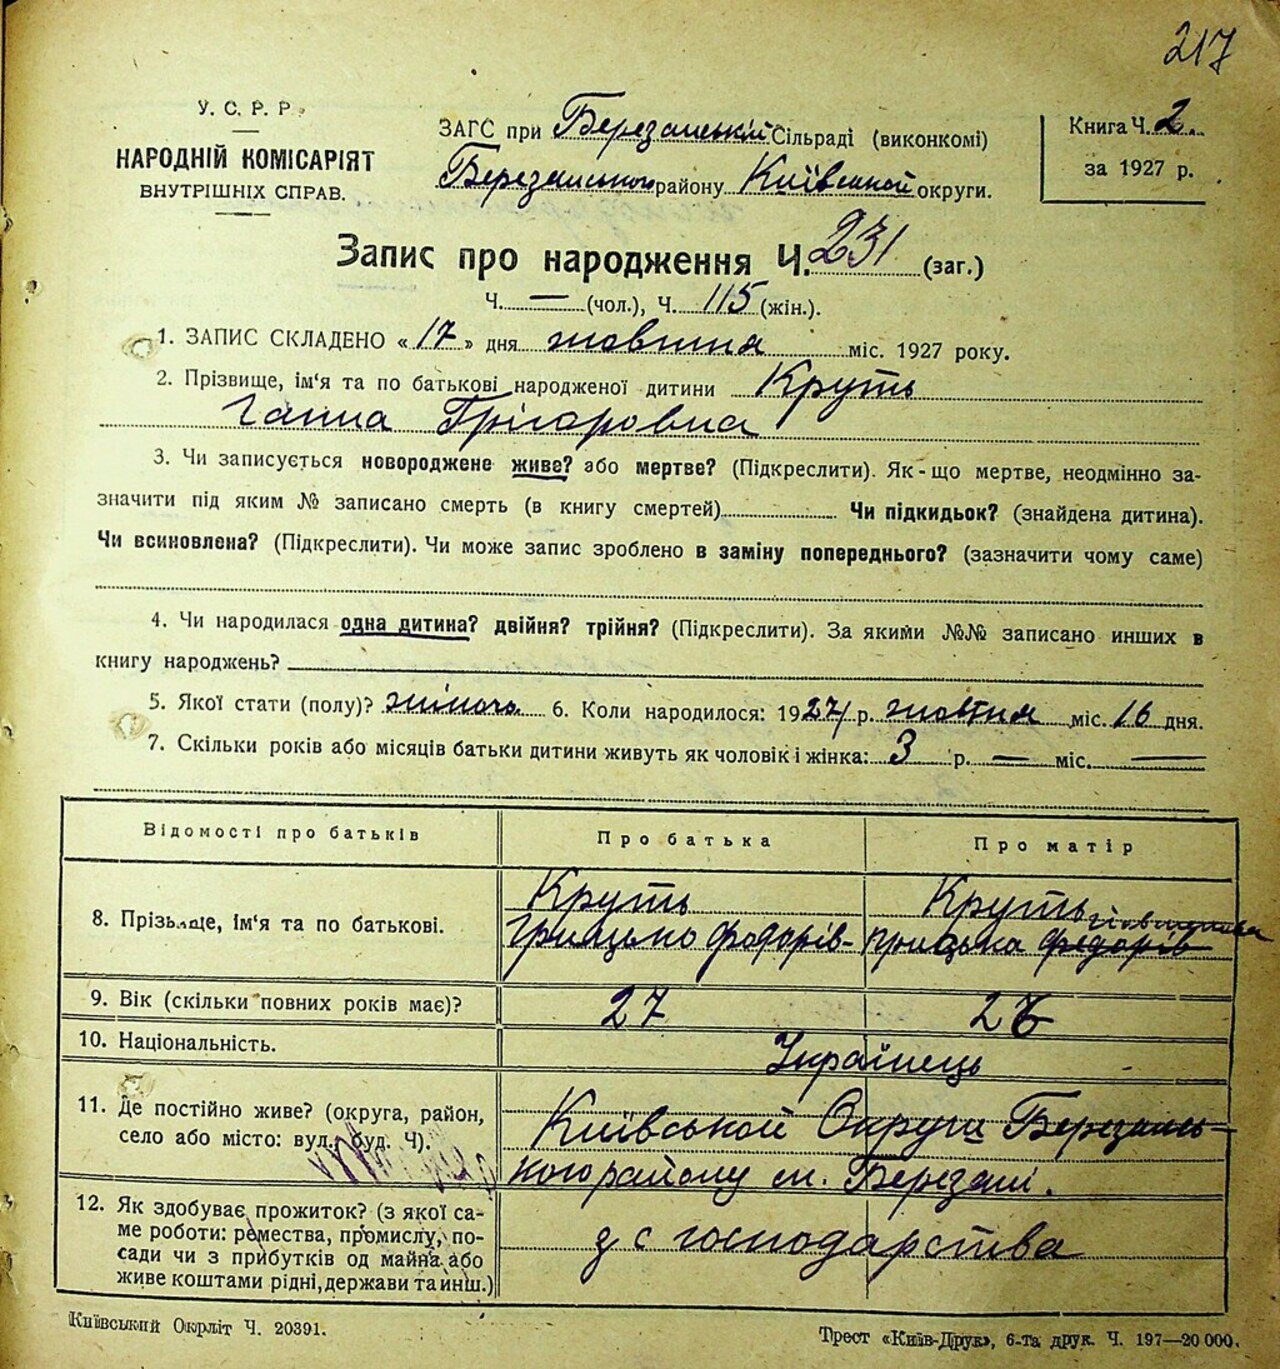 217
У. С. Р. Р.
НАРОДНІЙ КОМІСАРІЯТ
ВНУТРІШНІХ СПРАВ.
ЗАГС при Березанській Сільраді (виконкомі)
Березанського району Київської округи.
Книга Ч. 2.
за 1927 р.
Запис про народження Ч. 231 (заг.)
Ч. — (чол.), Ч. 115 (жін.).
1. ЗАПИС СКЛАДЕНО «17» дня жовтня міс. 1927 року.
2. Прізвище, ім'я та по батькові народженої дитини Круть
Ганна Грігоровна
3. Чи записується новороджене живе? або мертве? (Підкреслити). Як-що мертве, неодмінно за-
значити під яким № записано смерть (в книгу смертей) Чи підкидьок? (знайдена дитина).
Чи всиновлена? (Підкреслити). Чи може запис зроблено в заміну попереднього? (зазначити чому саме)
4. Чи народилася одна дитина? двійня? трійня? (Підкреслити). За якими №№ записано инших в
книгу народжень?
5. Якої стати (полу)? жіноча 6. Коли народилося: 1927 р. жовтня міс. 16 дня.
7. Скільки років або місяців батьки дитини живуть як чоловік і жінка: 3 р. — міс. —
Відомості про батьків Про батька Про матір
8. Прізвище, ім'я та по батькові. Круть Круть
Грицько Федорів- Федорів
9. Вік (скільки повних років має)? 27 26
10. Національність. Українець
11. Де постійно живе? (округа, район,
село або місто: вул., буд. Ч).
Київської Округи Березансь-
кого району м. Березані.
12. Як здобуває прожиток? (з якої са-
ме роботи: ремества, промислу, по-
сади чи з прибутків од майна або
живе коштами рідні, держави та инш.)
з с господарства
Київський Окрліт Ч. 20391.
Трест «Київ-Друк», 6-та друк. Ч. 197—20 000.